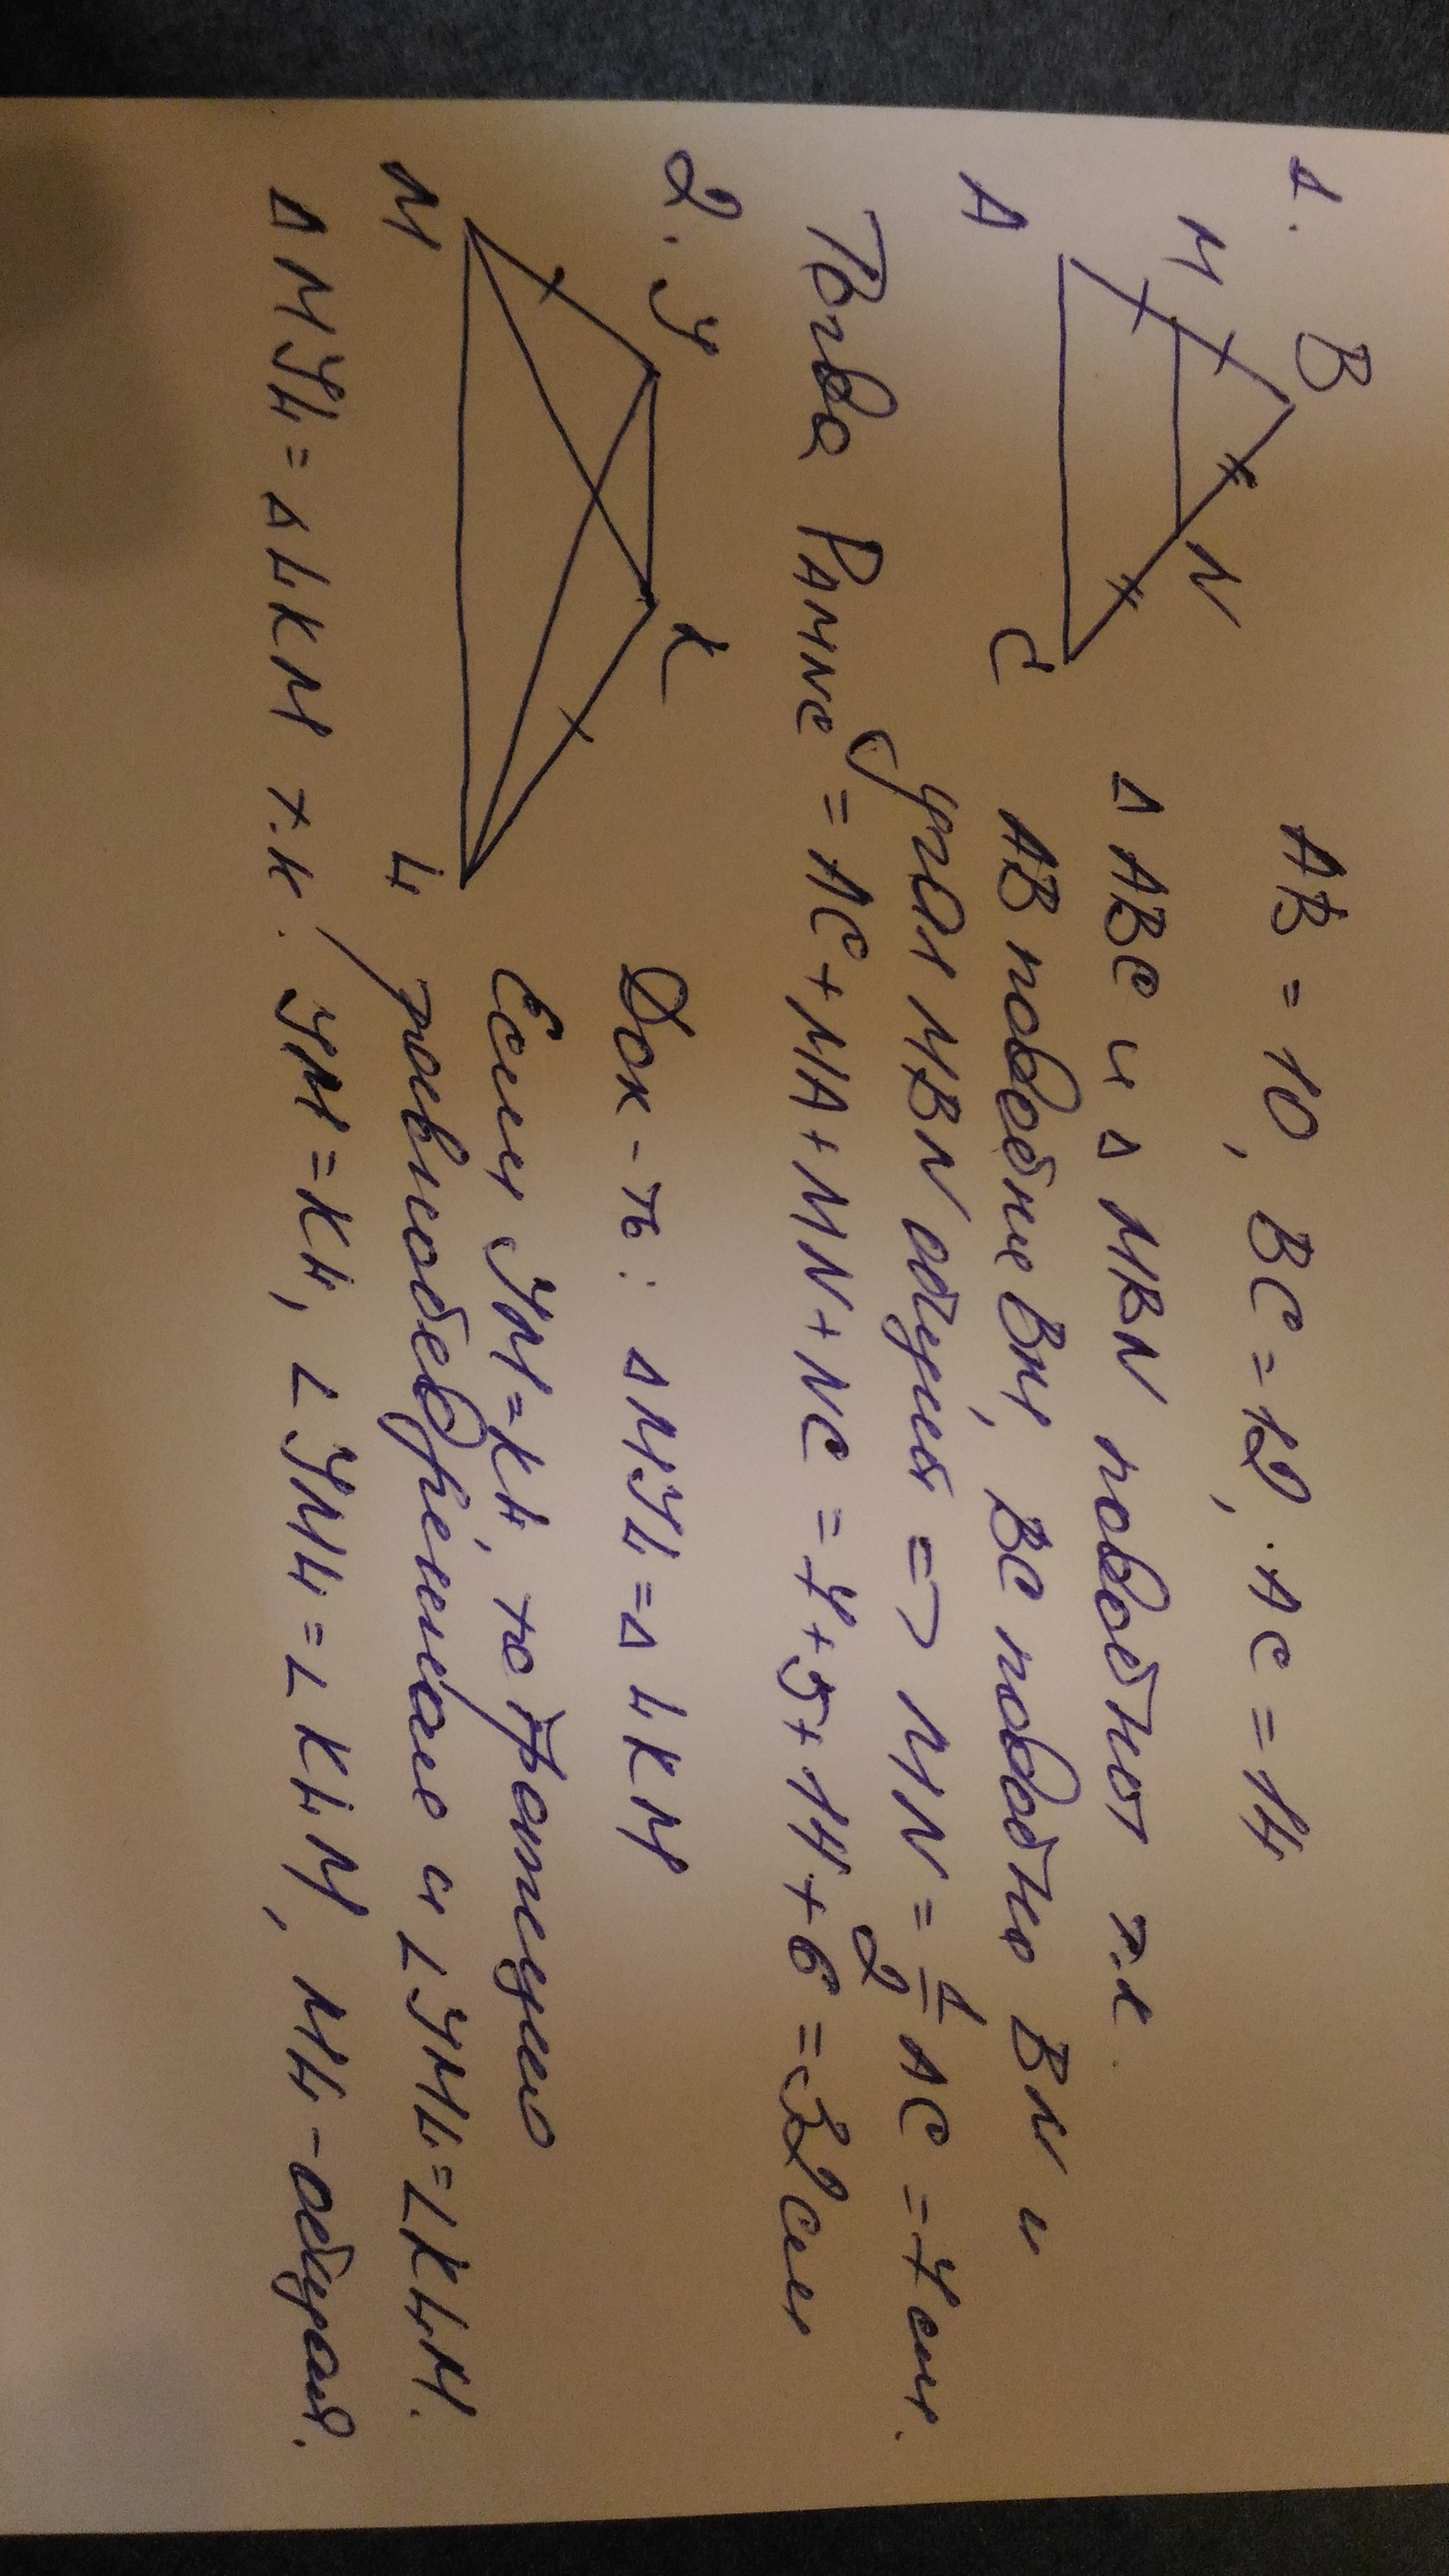 1.
B
M
N
A
C
AB = 10, BC = 12, AC = 14
Δ ABC и Δ MBN подобны т.к.
AB подобие BM, BC подобно BN и
угол MBN общий => MN = 1/2 AC = 7 см.
Тогда PAMNC = AC + MA + MN + NC = 7 + 5 + 14 + 6 = 32 см
2.
У
K
M
L
Док-ть: Δ MУL = Δ LKM
Если УM = KL, то трапеция
равнобедренная и ∠УML = ∠KLM.
Δ MУL = Δ LKM т.к. УM = KL, ∠УML = ∠KLM, ML - общая.